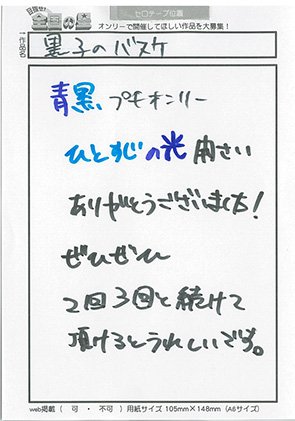 セロテープ位置
目指せ!
全国の星
オンリーで開催してほしい作品を大募集！
作品名
黒子のバスケ
青黒プチオンリー
ひとすじの光開さい
ありがとうございました！
ぜひぜひ
2回3回と続けて
頂けるとうれしいです。
web掲載（　可　・　不可　）用紙サイズ 105mm×148mm（A6サイズ）